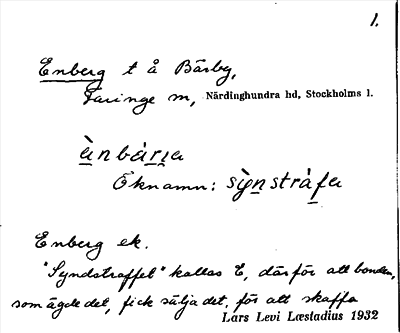 1.
Enberg t å Bärby,
Faringe sn, Närdinghundra hd, Stockholms l.
ànbàrıa
Öknamn: sỳnstràfa
Enberg ek.
"Syndstraffet" kallas E, därför att bonden,
som ägde det, fick sälja det, för att skaffa
Lars Levi Læstadius 1932